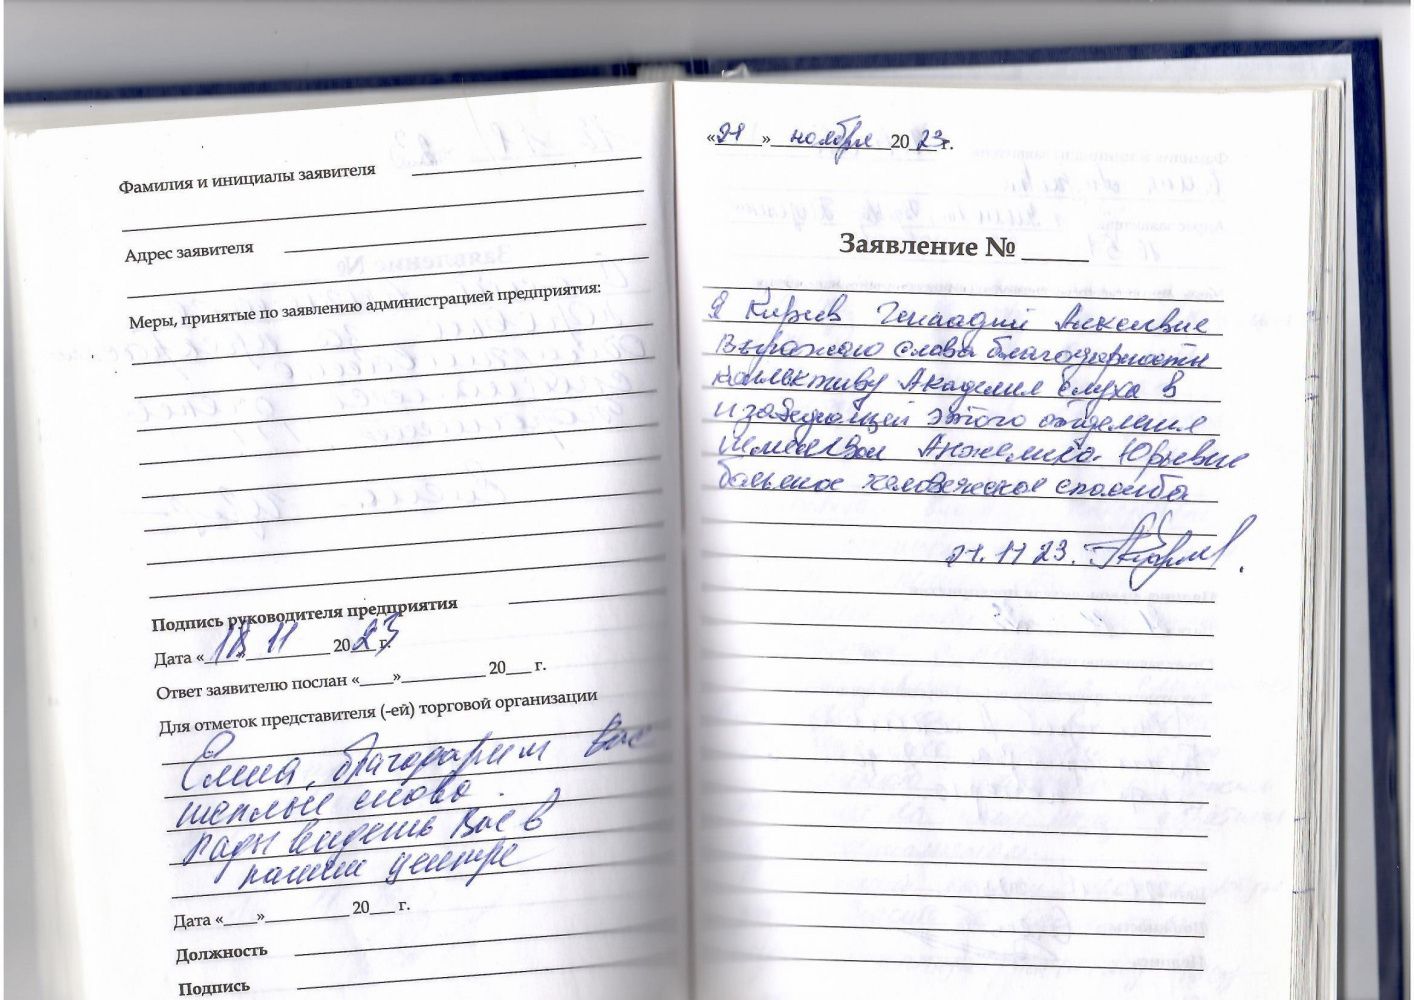 Фамилия и инициалы заявителя
Адрес заявителя
Меры, принятые по заявлению администрацией предприятия:
Подпись руководителя предприятия
Дата «18» 11 2023 г.
Ответ заявителю послан «___»_________ 20___ г.
Для отметок представителя (-ей) торговой организации
благодарим Вас
теплые слова.
Рады видеть Вас в
нашем центре
Дата «___»_________ 20___ г.
Должность
Подпись
«21» ноября 2023 г.
Заявление № _____
Я Геннадий
Выражаю слова благодарности
коллективу Академия слуха в
и заведующей этого отделения
Анжелика Юрьевне
большое человеческое спасибо
21.11 23.